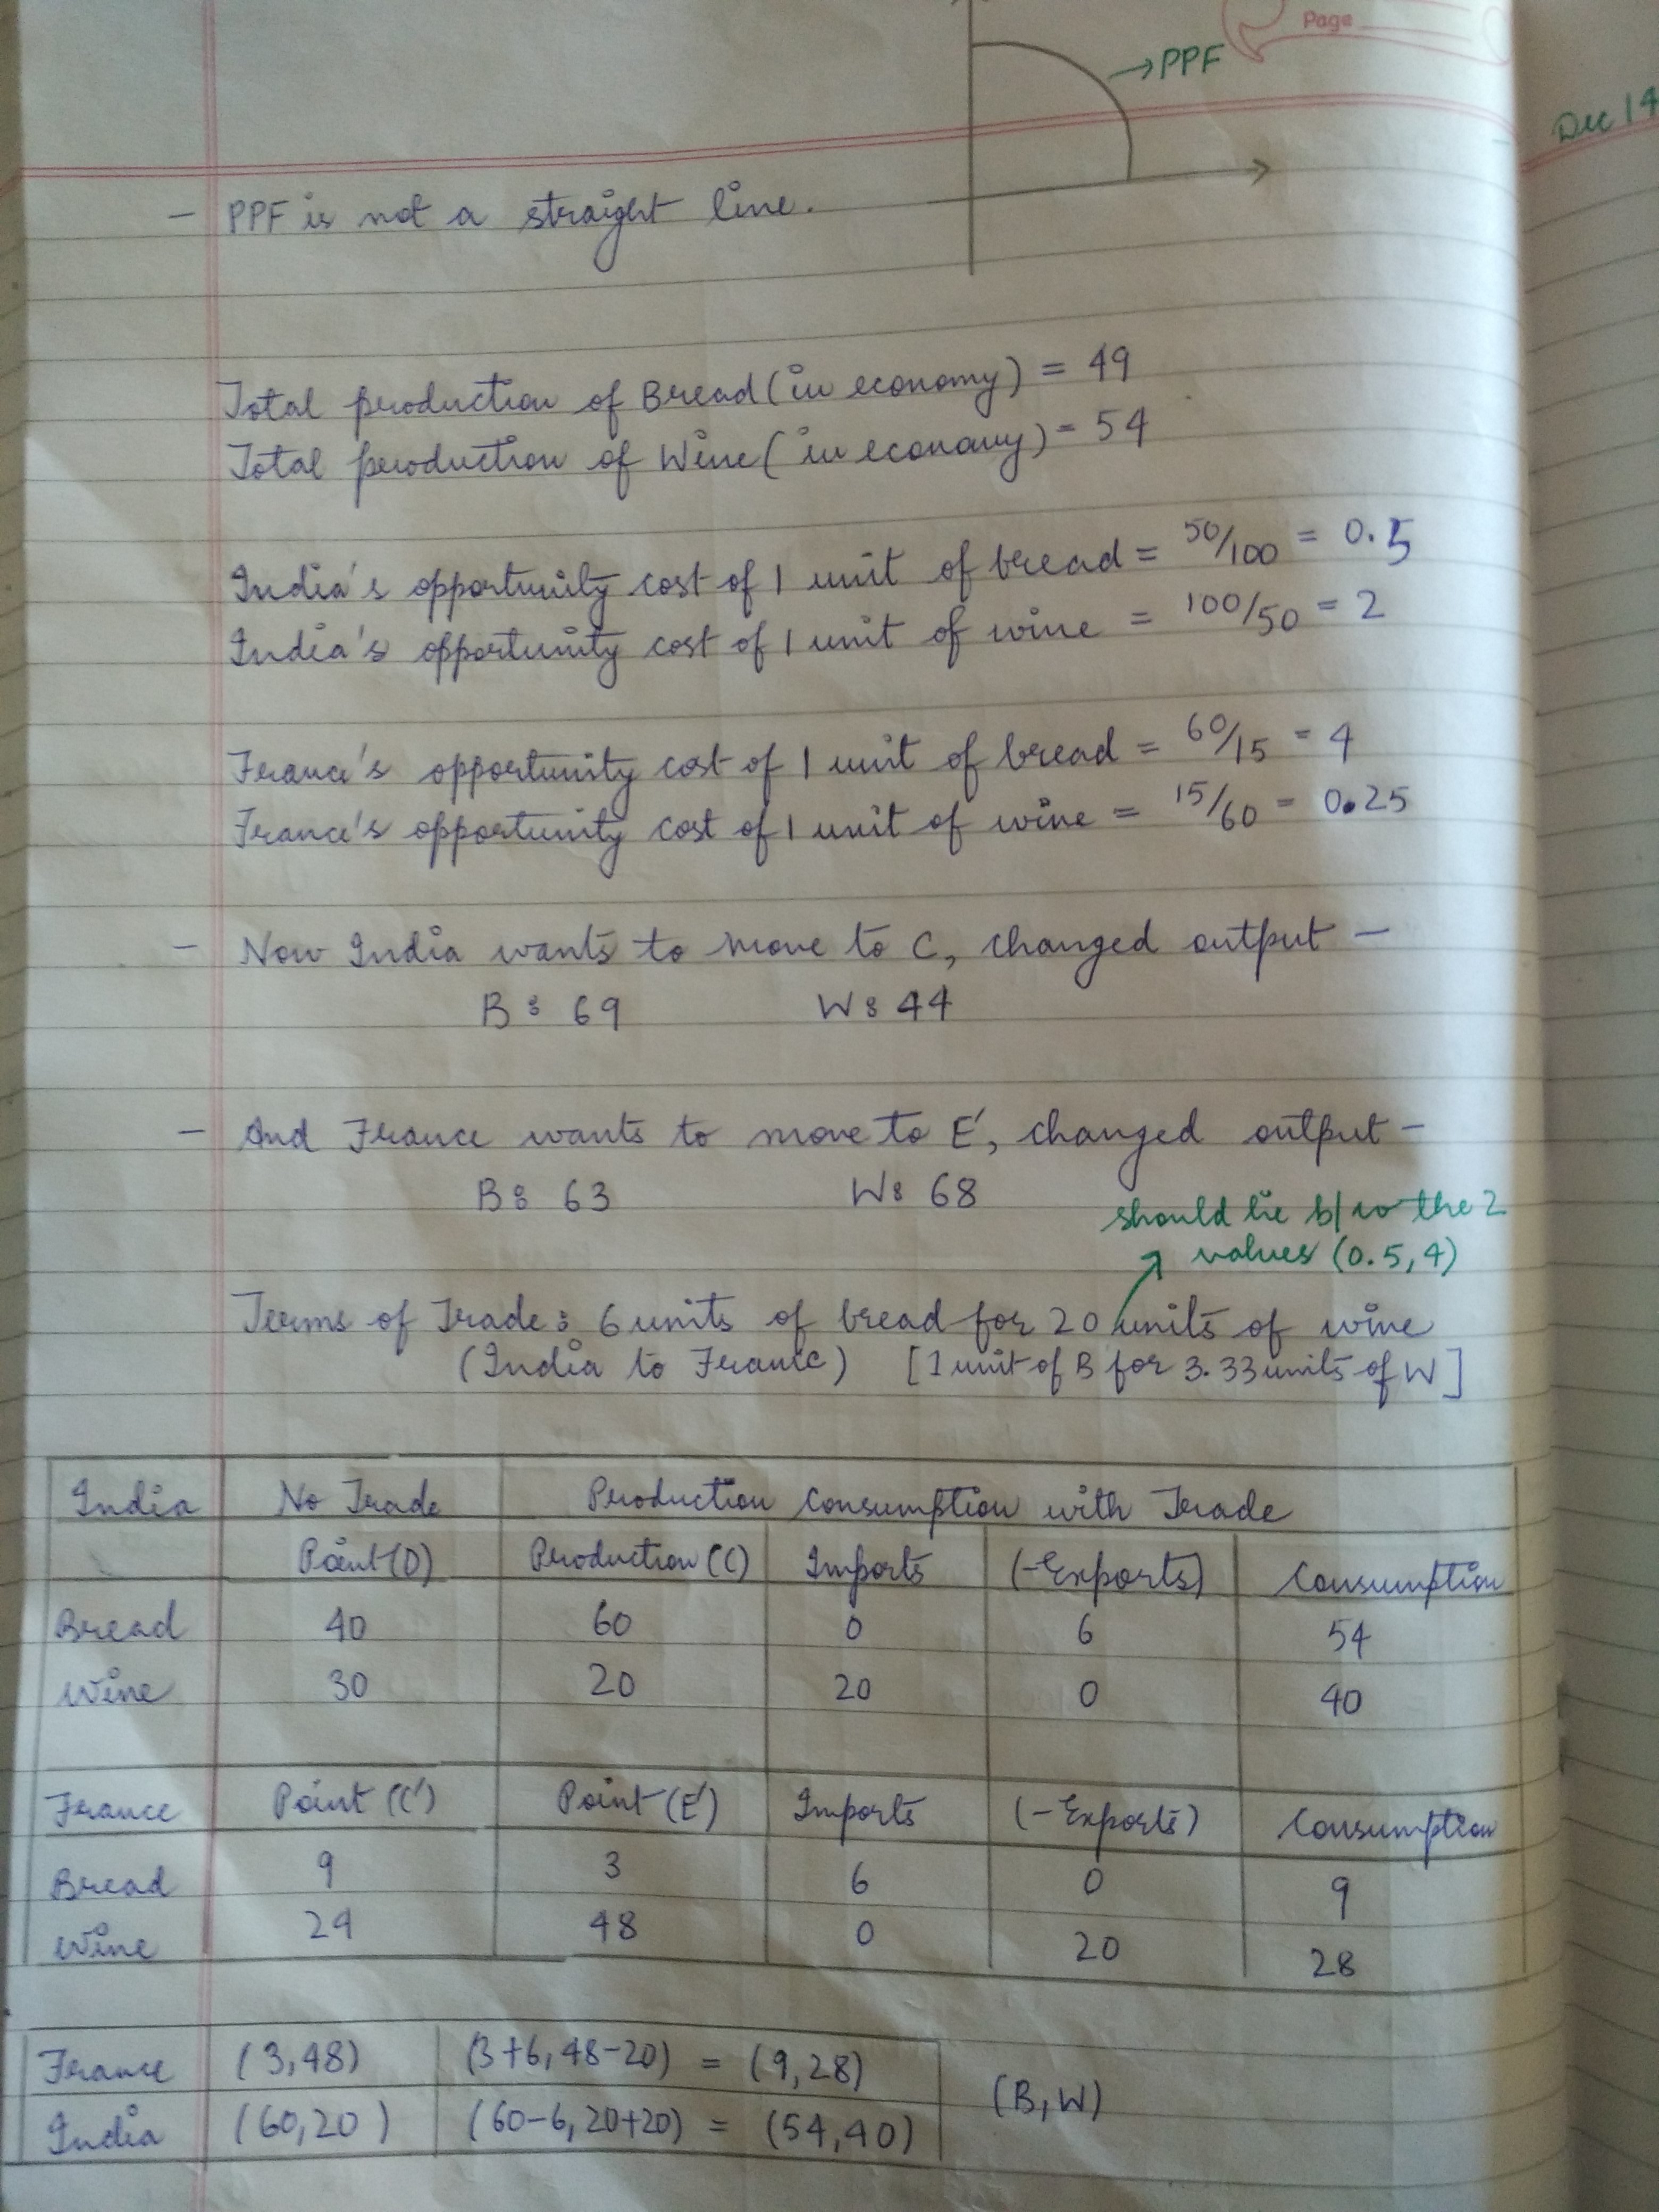 Page
→PPF
Dec 14
- PPF is not a straight line.
Total production of Bread (in economy) = 49
Total production of Wine (in economy) = 54
India's opportunity cost of 1 unit of bread = 50/100 = 0.5
India's opportunity cost of 1 unit of wine = 100/50 = 2
France's opportunity cost of 1 unit of bread = 60/15 = 4
France's opportunity cost of 1 unit of wine = 15/60 = 0.25
- Now India wants to move to C, changed output -
B: 69 W: 44
- And France wants to move to E', changed output -
B: 63 W: 68
should lie b/w the 2
values (0.5, 4)
Terms of Trade: 6 units of bread for 20 units of wine
(India to France) [1 unit of B for 3.33 units of W]
India No Trade Production Consumption with Trade
Point (D) Production (C) Imports (-Exports) Consumption
Bread 40 60 0 6 54
Wine 30 20 20 0 40
France Point (C') Point (E') Imports (-Exports) Consumption
Bread 9 3 6 0 9
Wine 24 48 0 20 28
France (3,48) (3+6, 48-20) = (9,28)
(B,W)
India (60,20) (60-6, 20+20) = (54,40)